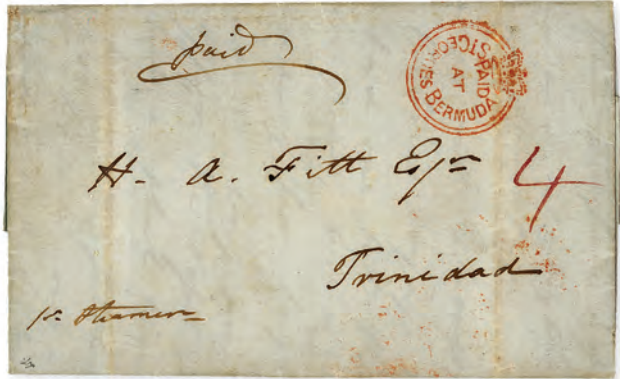 paid
PAID AT ST GEORGES BERMUDA
H. A. Fitt Esqr 4
Trinidad
pr Steamer